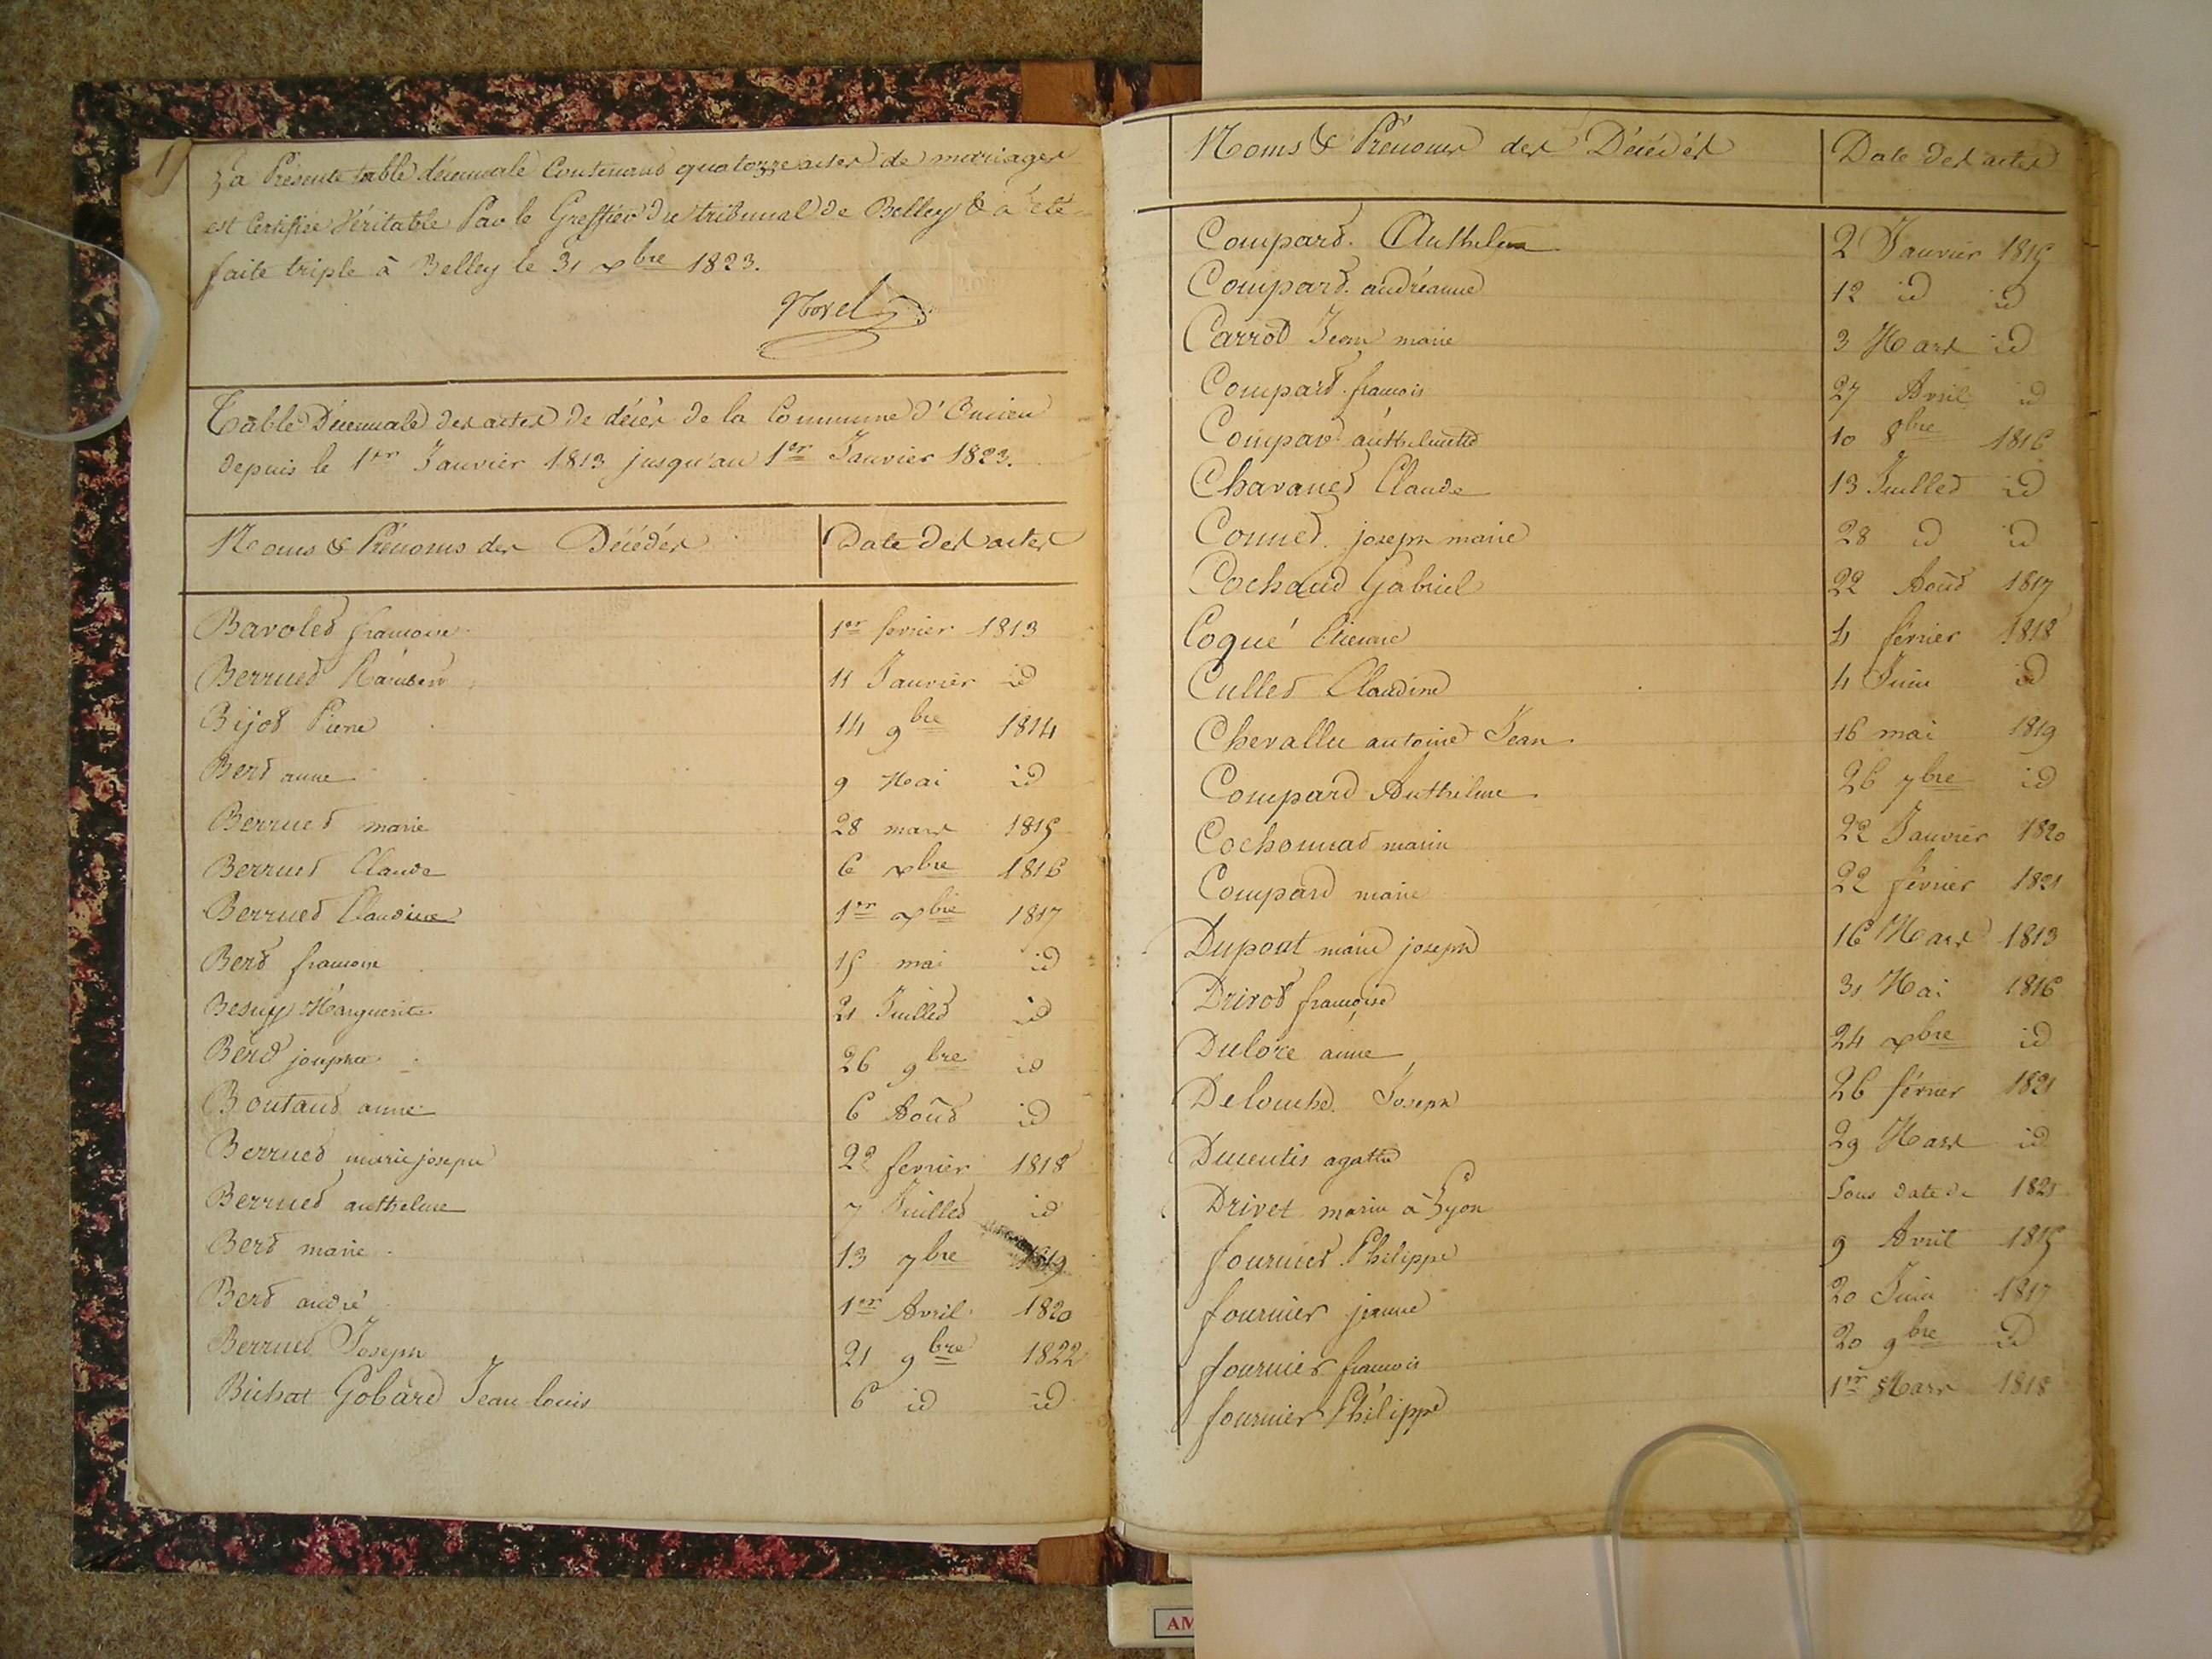 La Présente table décennale Contenant quatorze actes de mariages
est Certifiée Véritable Par le Greffier du tribunal de Belley & a été
faite triple à Belley le 31 xbre 1823.
Table Décennale des actes de décès de la Commune d'Oncieu
depuis le 1er Janvier 1813 jusqu'au 1er Janvier 1823.
Noms & Prénoms des Décédés Date des actes
Barolet francoise 1er fevrier 1813
Berruet 11 Janvier id
Bijot Pierre 14 9bre 1814
Bert anne 9 Mai id
Berruet marie 28 mars 1815
Berruet Claude 6 xbre 1816
Berruet Claudine 1er xbre 1817
Bert francoise 15 mai id
Marguerite 21 Juillet id
Bert josephe 26 9bre id
Boutaud anne 6 Août id
Berruet marie joseph 22 fevrier 1818
Berruet anthelme 7 Juillet id
Bert marie 13 7bre 1819
Bert andré 1er Avril 1820
Berruet Joseph 21 9bre 1822
Bichat Gobard Jean louis 6 id id
Noms & Prénoms des Décédés Date des actes
Compard Anthelme 2 Janvier 1815
Compard andréanne 12 id id
Carrot Jean marie 3 Mars id
Compard francois 27 Avril id
Compard anthelmette 10 8bre 1816
Chavanet Claude 13 Juillet id
Connet joseph marie 28 id id
Cochaud Gabriel 22 Août 1817
Coqué Etienne 4 février 1818
Cullet Claudine 4 Juin id
antoine Jean 16 mai 1819
Compard Anthelme 26 7bre id
Cochonnat marie 22 Janvier 1820
Compard marie 22 février 1821
Dupont marie joseph 16 Mars 1813
Drivot françoise 31 Mai 1816
Dulore anne 24 xbre id
Delouche Joseph 26 février 1821
Ducentis agathe 29 Mars id
Drivet marie à Lyon Sous date de 1821
fournier Philippe 9 Avril 1815
fournier jeanne 20 Juin 1817
fournier francois 20 9bre id
fournier Philippe 1er Mars 1818
AM